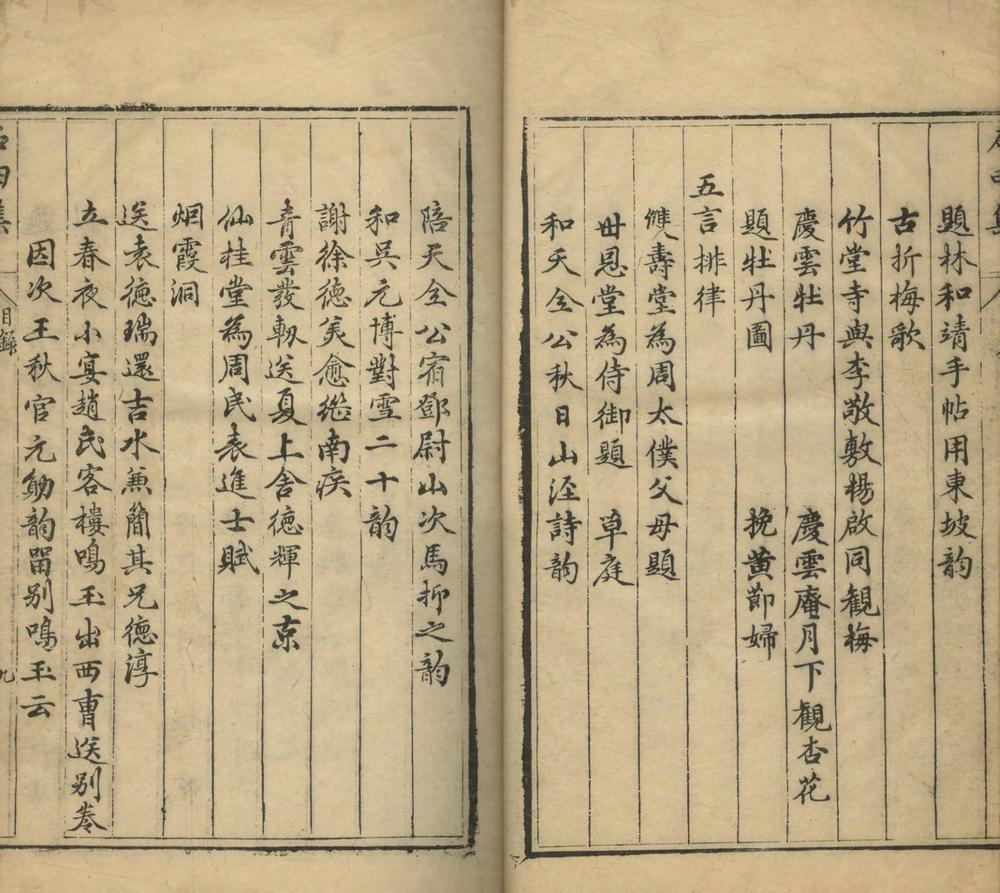 題林和靖手帖用東坡韵
古折梅歌
竹堂寺與李敬敷楊啟同観梅
慶雲牡丹　慶雲庵月下觀杏花
題牡丹圖　挽黄節婦
五言排律
雙壽堂為周太僕父母題
毌恩堂為侍御題　草庭
和天全公秋日山涇詩韵
陪天全公宿鄧尉山次馬抑之韵
和吳元博對雪二十韵
謝徐德美愈繼南疾
青雲發軔送夏上舍德輝之京
仙桂堂為周民表進士賦
烟霞洞
送袁德瑞還吉水兼簡其兄德淳
立春夜小宴趙民客樓鳴玉出西曹送别卷
因次王秋官元勛韵畱别鳴玉云
石田集
目録
九